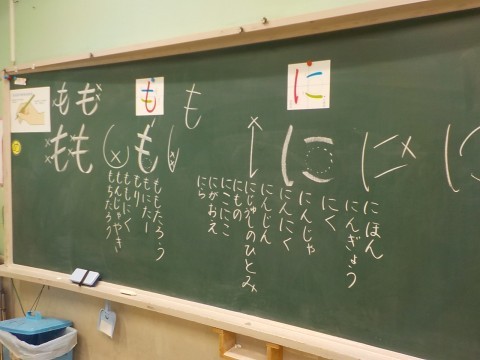 に
にほん
にんぎょう
にく
にんじゃ
にんにく
にんじん
にじゅうしのひとみ
にもの
にこにこ
にがおえ
にら
も
も
も
ももたろう
もにたー
もり
ももにく
もんじゃやき
もちたろう
もも
もも